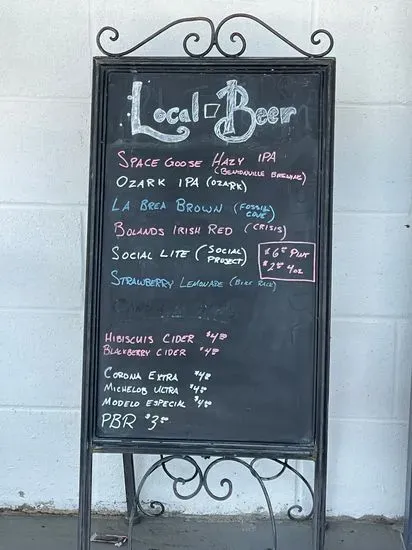 Local Beer
Space Goose Hazy IPA
(Bentonville Brewing)
Ozark IPA (Ozark)
La Brea Brown (Fossil Cove)
Bolands Irish Red (Crisis)
Social Lite (Social Project)
$6.00 Pint
$2.50 4oz
Strawberry Lemonade (Bike Rack)
Hibiscuis Cider $4.50
Blackberry Cider $4.50
Corona Extra $4.00
Michelob Ultra $4.00
Modelo Especial $4.00
PBR $3.00